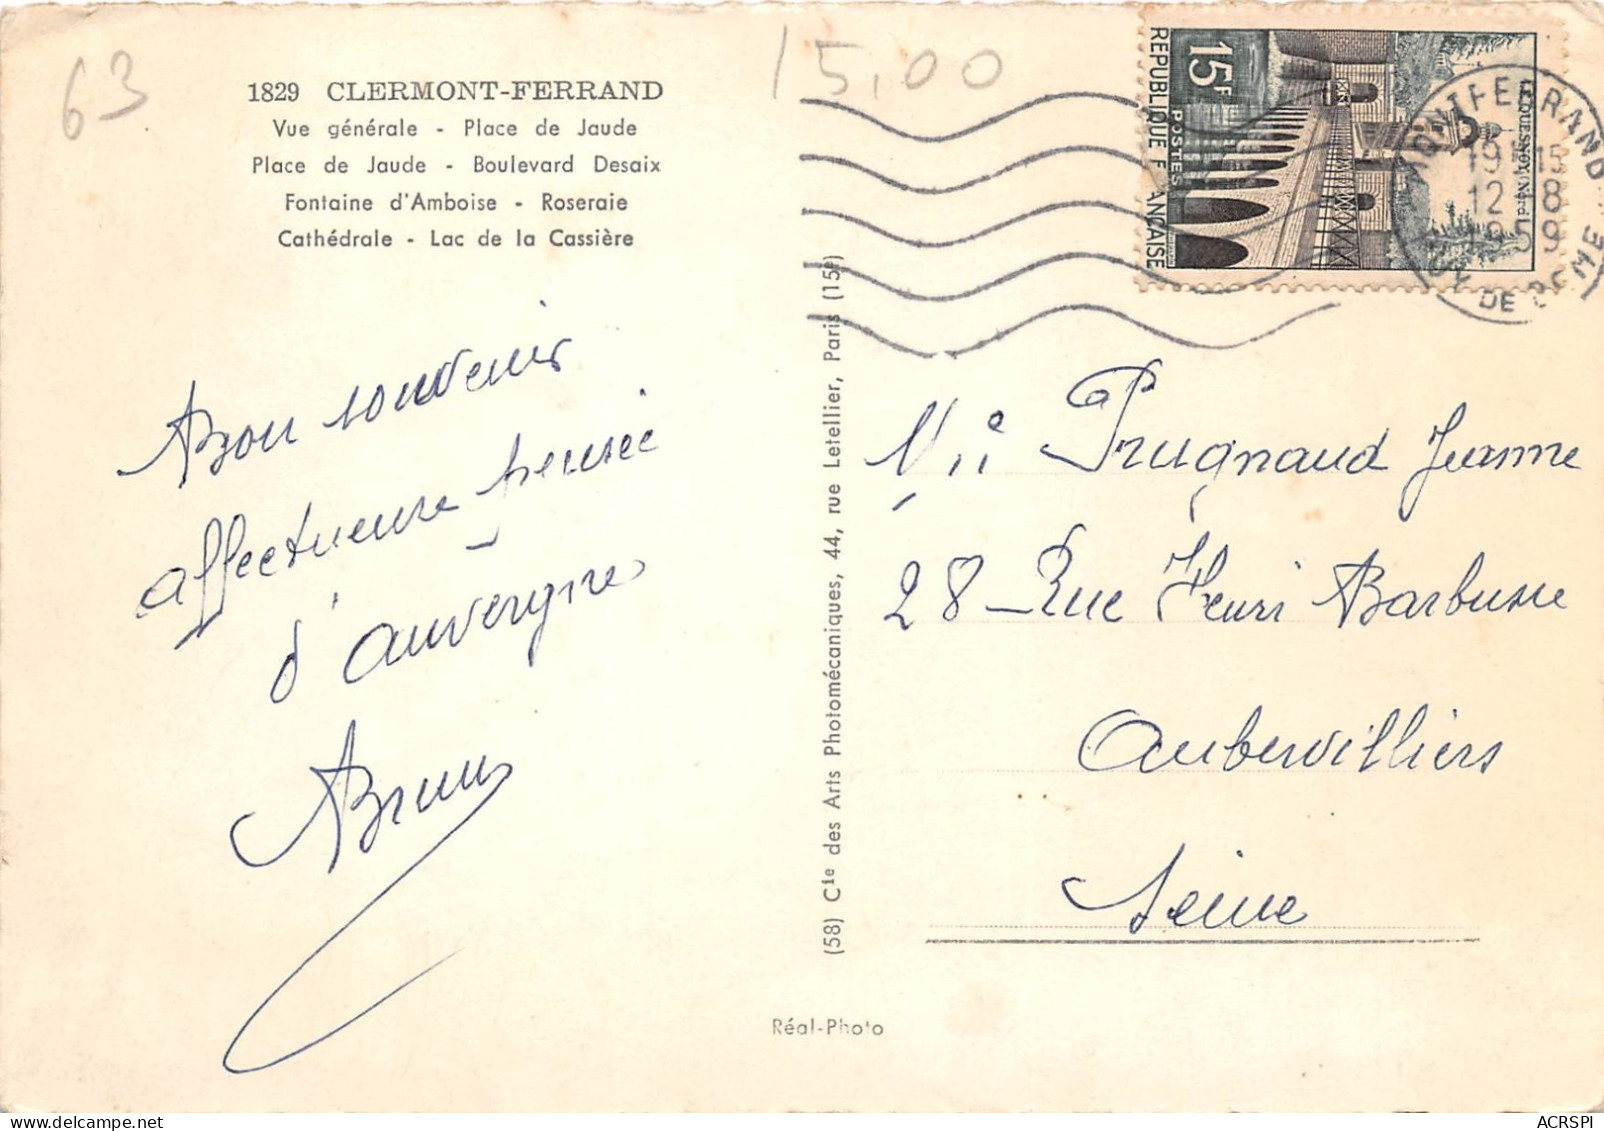 63
15,00
1829 CLERMONT-FERRAND
Vue générale - Place de Jaude
Place de Jaude - Boulevard Desaix
Fontaine d'Amboise - Roseraie
Cathédrale - Lac de la Cassière
15F
POSTES
REPUBLIQUE FRANCAISE
LE QUESNOY (Nord)
MONTFERRAND
19H15
12-8
1959
PUY DE DOME
Bon souvenir
affectueuse pensée
d'auvergne
Brun
(58) Cie des Arts Photomécaniques, 44, rue Letellier, Paris (15e)
Prugnaud Jeanne
28 Rue Henri Barbusse
Aubervilliers
Seine
Réal-Photo
ACRSPI